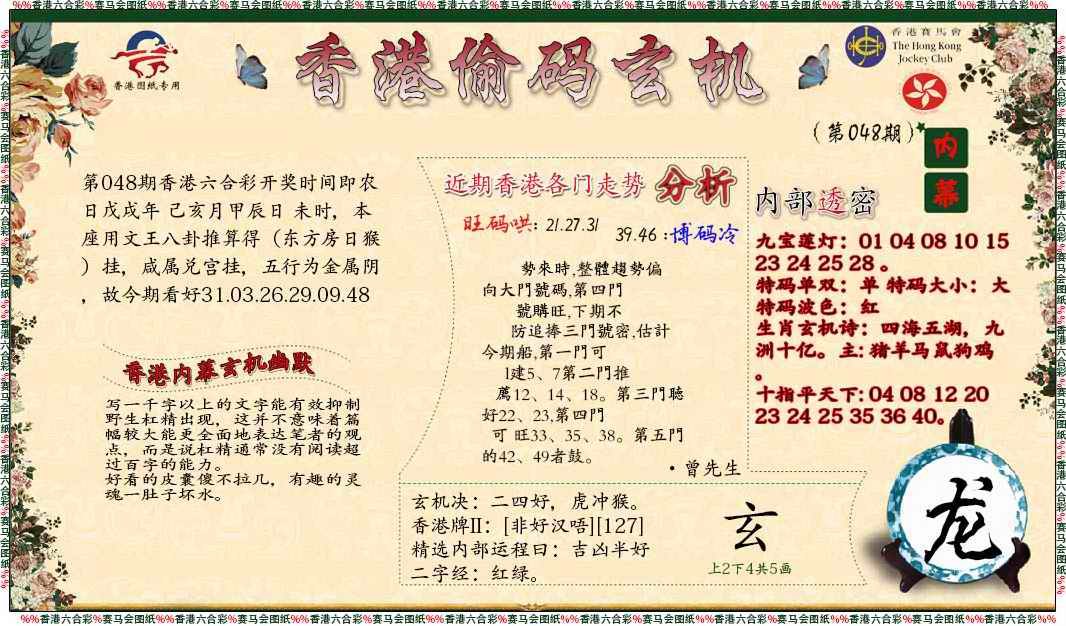 %%香港六合彩%赛马会图纸%%香港六合彩%赛马会图纸%%香港六合彩%赛马会图纸%%香港六合彩%赛马会图纸%%香港六合彩%赛马会图纸%%香港六合彩%赛马会图纸%%香港六合彩%%
香港图纸专用
香港偷码玄机
香港賽馬會
The Hong Kong
Jockey Club
（第048期）
内
幕
第048期香港六合彩开奖时间即农
日戊戌年 己亥月甲辰日 未时，本
座用文王八卦推算得（东方房日猴
）挂，咸属兑宫挂，五行为金属阴
，故今期看好31.03.26.29.09.48
香港内幕玄机幽默
写一千字以上的文字能有效抑制
野生杠精出现，这并不意味着篇
幅较大能更全面地表达笔者的观
点，而是说杠精通常没有阅读超
过百字的能力。
好看的皮囊傻不拉几，有趣的灵
魂一肚子坏水。
近期香港各门走势 分析
旺码哄：21.27.31
39.46：博码冷
勢來時,整體趨勢偏
向大門號碼,第四門
號購旺,下期不
防追捧三門號密,估計
今期船,第一門可
1建5、7第二門推
薦12、14、18。第三門聴
好22、23,第四門
可 旺33、35、38。第五門
的42、49者鼓。
·曾先生
内部透密
九宝莲灯：01 04 08 10 15
23 24 25 28 。
特码单双：单 特码大小：大
特码波色：红
生肖玄机诗：四海五湖，九
洲十亿。主: 猪羊马鼠狗鸡
。
十指平天下: 04 08 12 20
23 24 25 35 36 40。
玄机决：二四好，虎冲猴。
香港牌II：[非好汉唔][127]
精选内部运程曰：吉凶半好
二字经：红绿。
玄
上2下4共5画
龙
%%香港六合彩%赛马会图纸%%香港六合彩%赛马会图纸%%香港六合彩%赛马会图纸%%香港六合彩%赛马会图纸%%香港六合彩%赛马会图纸%%香港六合彩%赛马会图纸%%香港六合彩%%
%%香港六合彩%赛马会图纸%%香港六合彩%赛马会图纸%%香港六合彩%赛马会图纸%%香港六合彩%赛马会图纸%%
%%香港六合彩%赛马会图纸%%香港六合彩%赛马会图纸%%香港六合彩%赛马会图纸%%香港六合彩%赛马会图纸%%